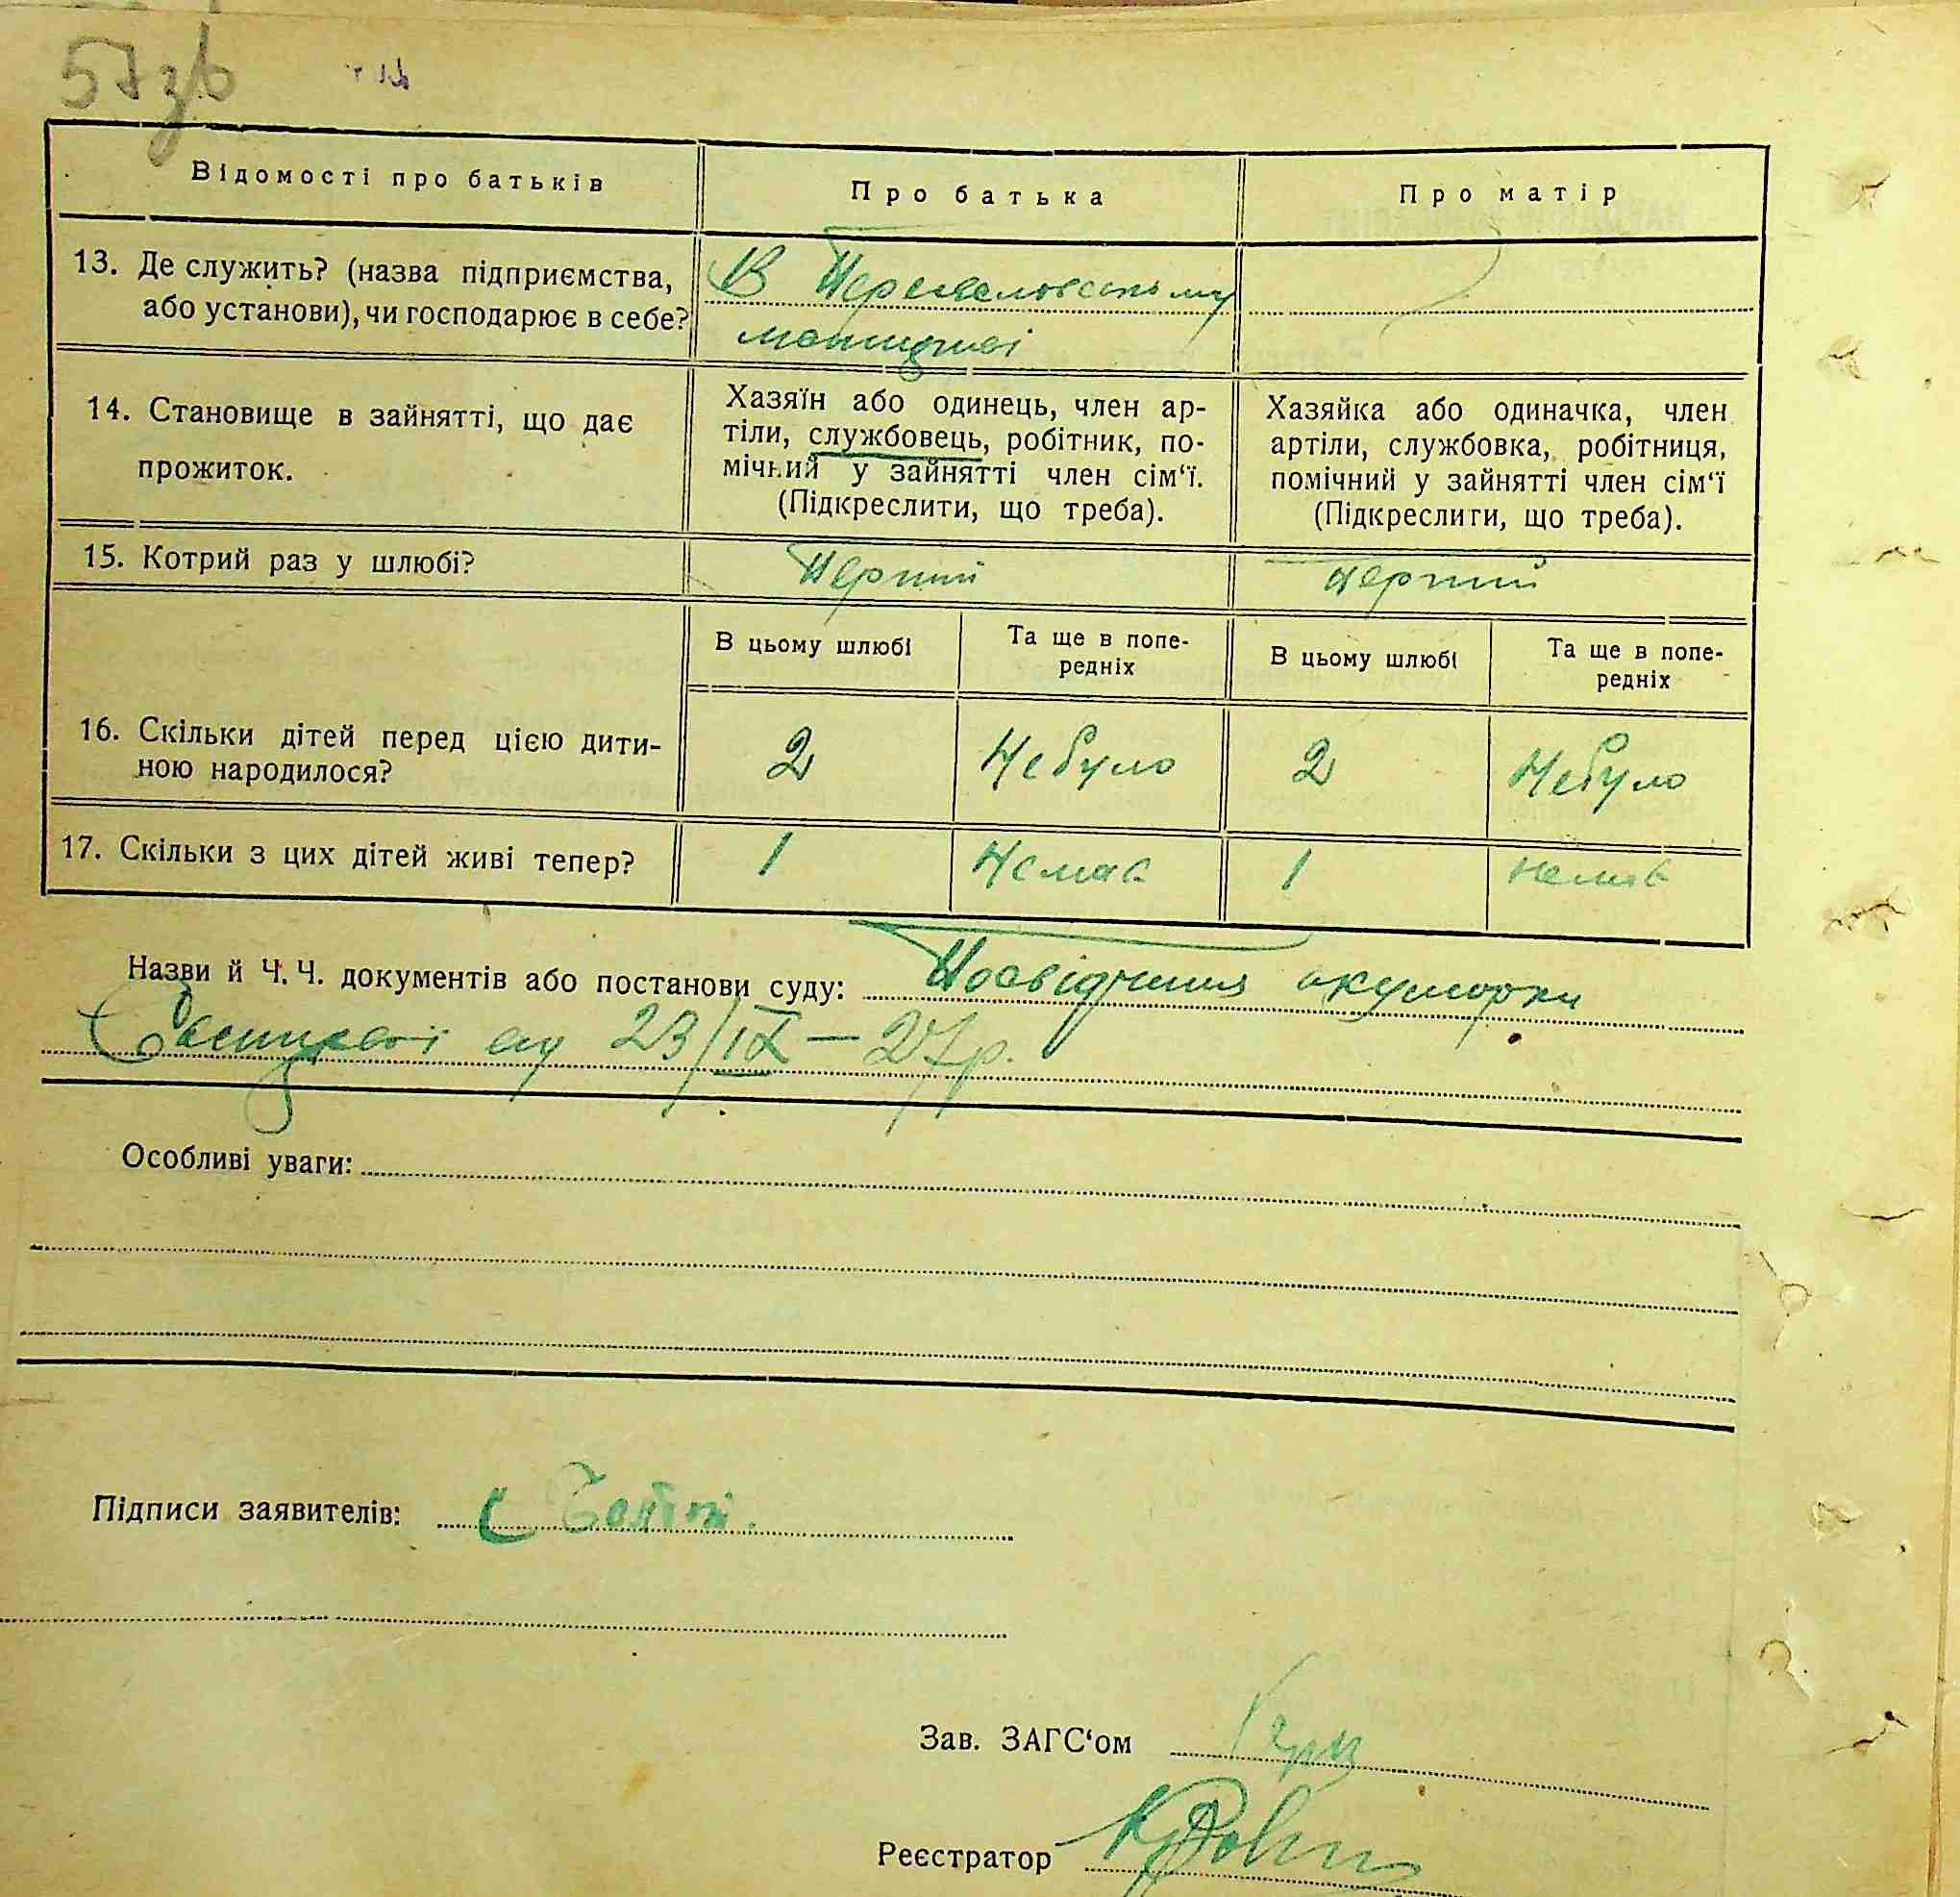 57зв
Відомості про батьків
Про батька
Про матір
13. Де служить? (назва підприємства,
або установи), чи господарює в себе?
В
14. Становище в зайнятті, що дає
прожиток.
Хазяїн або одинець, член ар-
тіли, службовець, робітник, по-
мічний у зайнятті член сім‘ї.
(Підкреслити, що треба).
Хазяйка або одиначка, член
артіли, службовка, робітниця,
помічний у зайнятті член сім‘ї
(Підкреслити, що треба).
15. Котрий раз у шлюбі?
Перший
Перший
В цьому шлюбі
Та ще в попе-
редніх
В цьому шлюбі
Та ще в попе-
редніх
16. Скільки дітей перед цією дити-
ною народилося?
2
Небуло
2
Небуло
17. Скільки з цих дітей живі тепер?
1
Немає
1
Немає
Назви й Ч. Ч. документів або постанови суду: Посвідчення акушорки
від 23/IX — 27р.
Особливі уваги:
Підписи заявителів:
Зав. ЗАГС‘ом
Реєстратор